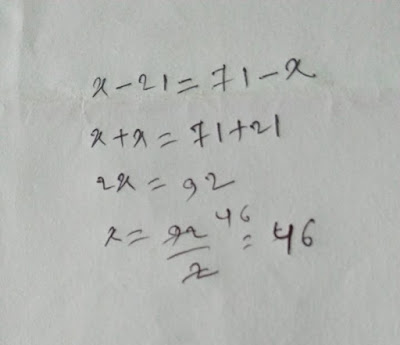 x - 21 = 71 - x
x + x = 71 + 21
2x = 92
x = 92/2 46 = 46